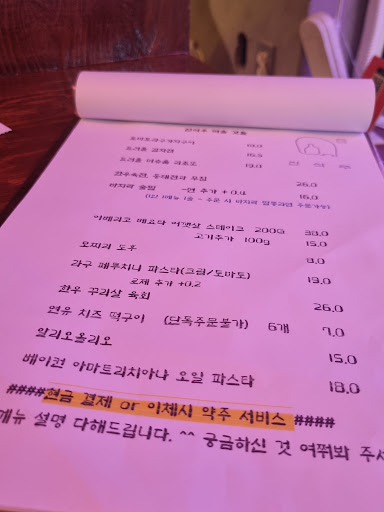 토마토
19.0
도가홀 감자전
16.5
19.0
한우육전, 동태전과 무침
26.0
바지락 술찜 -면 추가 + 0.4
16.0
이베리코 뼈요다 어깻살 스테이크 200G 38.0
고기추가 100g 15.0
오찌리 도우 8.0
라구 페투치나 파스타(크림/토마토) 19.0
로제 추가 +0.2
한우 꾸리살 육회 26.0
연유 치즈 떡구이 (단독주문불가) 6개 9.0
알리오올리오 15.0
베이컨 아마트리치아나 오일 파스타 18.0
####현금 결제 or 이체시 약주 서비스 ####
메뉴 설명 다해드립니다. ^^ 궁금하신 것 여쭤봐 주세